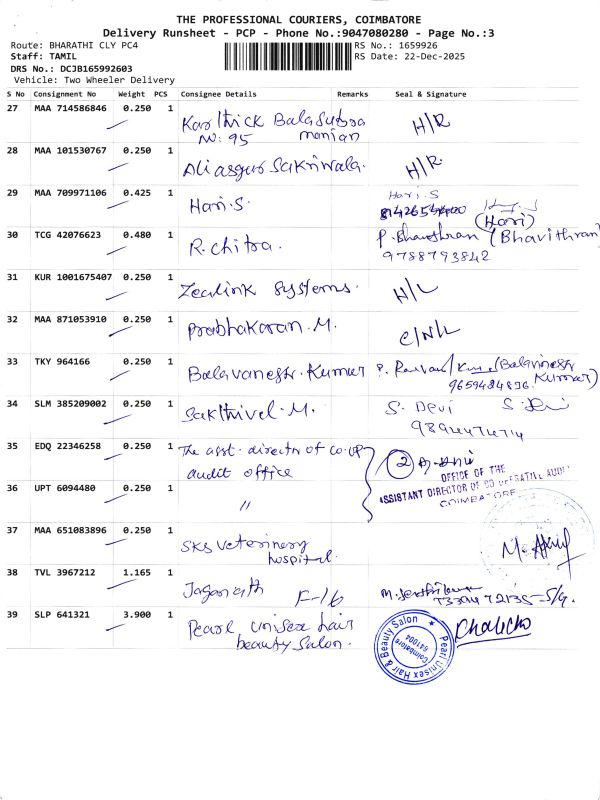 THE PROFESSIONAL COURIERS, COIMBATORE
Delivery Runsheet - PCP - Phone No.:9047080280 - Page No.:3
Route: BHARATHI CLY PC4 RS No.: 1659926
Staff: TAMIL RS Date: 22-Dec-2025
DRS No.: DCJB165992603
Vehicle: Two Wheeler Delivery
S No Consignment No Weight PCS Consignee Details Remarks Seal & Signature
27 MAA 714586846 0.250 1 Karthick Balasubra H/R
NO: 95 manian
28 MAA 101530767 0.250 1 Aliasgur Sakriwala. H/R.
29 MAA 709971106 0.425 1 Hari.S. Hari.S
(Hari)
30 TCG 42076623 0.480 1 R.chitra. (Bhavithran)
9788793842
31 KUR 1001675407 0.250 1 Zealink Systems. H/L
32 MAA 871053910 0.250 1 Prabhakaran.M. C/N/L
33 TKY 964166 0.250 1 Balavanestr.Kumar (Balavinestr
9659484836 Kumar)
34 SLM 385209002 0.250 1 Sakthivel.M. S. Devi
9894474714
35 EDQ 22346258 0.250 1 The asst. director of co-op 2
audit office OFFICE OF THE
36 UPT 6094480 0.250 1 " ASSISTANT DIRECTOR OF CO OPERATIVE AUDIT
COIMBATORE
37 MAA 651083896 0.250 1 SKS veterinery
hospital.
38 TVL 3967212 1.165 1 Jaganath F-16
39 SLP 641321 3.900 1 Pearl unisex hair
beauty Salon.
Pearl Unisex Hair & Beauty Salon
Coimbatore
641004